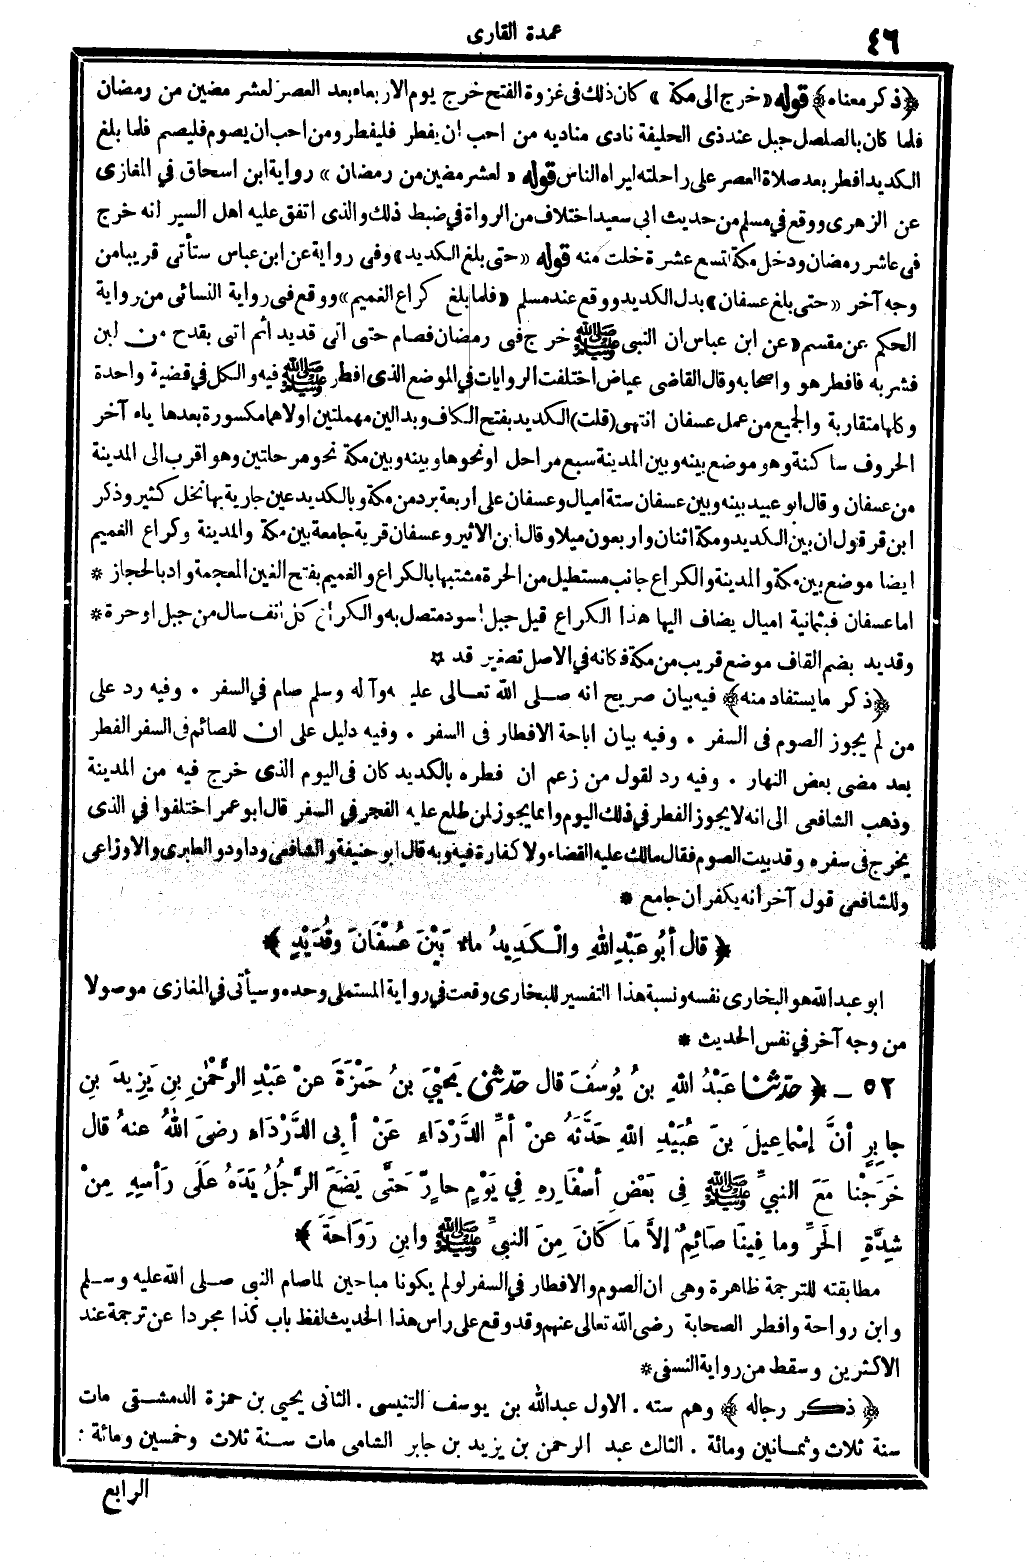 ٤٦
عمدة القارى
﴿ذكر معناه﴾ قوله «خرج الى مكة» كان ذلك فى غزوة الفتح خرج يوم الاربعاء بعد العصر لعشر مضين من رمضان
فلما كان بالصلصل جبل عند ذى الحليفة نادى مناديه من احب ان يفطر فليفطر ومن احب ان يصوم فليصم فلما بلغ
الكديد افطر بعد صلاة العصر على راحلته ليراه الناس قوله «لعشر مضين من رمضان» رواية ابن اسحاق في المغازى
عن الزهرى ووقع في مسلم من حديث ابى سعيد اختلاف من الرواة في ضبط ذلك والذى اتفق عليه اهل السير انه خرج
فى عاشر رمضان ودخل مكة لتسع عشرة خلت منه قوله «حتى بلغ الكديد» وفى رواية عن ابن عباس ستأتى قريبا من
وجه آخر «حتى بلغ عسفان» بدل الكديد ووقع عند مسلم «فلما بلغ كراع الغميم» ووقع فى رواية النسائى من رواية
الحكم عن مقسم «عن ابن عباس ان النبى ﷺ خرج فى رمضان فصام حتى اتى قديد اثم اتى بقدح من لبن
فشربه فافطر هو واصحابه وقال القاضى عياض اختلفت الروايات في الموضع الذى افطر ﷺ فيه والكل في قضية واحدة
وكلها متقاربة والجميع من عمل عسفان انتهى (قلت) الكديد بفتح الكاف وبدالين مهملتين اولاهما مكسورة بعدها ياء آخر
الحروف ساكنة وهو موضع بينه وبين المدينة سبع مراحل او نحوها وبينه وبين مكة نحو مرحلتين وهو اقرب الى المدينة
من عسفان وقال ابو عبيد بينه وبين عسفان ستة اميال وعسفان على أربعة برد من مكة وبالكديد عين جارية بها نخل كثير وذكر
ابن قرقول ان بين الكديد ومكة اثنان واربعون ميلا وقال ابن الاثير وعسفان قرية جامعة بين مكة والمدينة وكراع الغميم
ايضا موضع بين مكة والمدينة والكراع جانب مستطيل من الحرة مشتبها بالكراع والغميم بفتح الغين المعجمة واد بالحجاز *
اما عسفان فبثمانية اميال يضاف اليها هذا الكراع قيل جبل اسود متصل به والكراع كل انف سال من جبل او حرة *
وقديد بضم القاف موضع قريب من مكة فكانه في الاصل تصغير قد *
﴿ذكر ما يستفاد منه﴾ فيه بيان صريح انه صلى الله تعالى عليه وآله وسلم صام في السفر . وفيه رد على
من لم يجوز الصوم فى السفر . وفيه بيان اباحة الافطار فى السفر . وفيه دليل على ان للصائم فى السفر الفطر
بعد مضى بعض النهار . وفيه رد لقول من زعم ان فطره بالكديد كان فى اليوم الذى خرج فيه من المدينة
وذهب الشافعى الى انه لا يجوز الفطر في ذلك اليوم وانما يجوز لمن طلع عليه الفجر في السفر قال ابو عمر اختلفوا في الذى
يخرج فى سفره وقد بيت الصوم فقال مالك عليه القضاء ولا كفارة فيه وبه قال ابو حنيفة والشافعى وداود والطبرى والاوزاعى
وللشافعى قول آخر انه يكفر ان جامع *
﴿ قال أبُو عَبْدِ اللهِ والْكَدِيدُ ماءٌ بَيْنَ عُسْفَانَ وقُدَيْدٍ ﴾
ابو عبد الله هو البخارى نفسه ونسبة هذا التفسير للبخارى وقعت في رواية المستملى وحده وسيأتى في المغازى موصولا
من وجه آخر في نفس الحديث *
٥٢ _ ﴿ حدّثنا عَبْدُ اللهِ بنُ يُوسُفَ قال حدّثنى يَحْيَىَ بنُ حَمْزَةَ عنْ عَبْدِ الرَّحْمٰنِ بنِ يَزِيدَ بنِ
جابِرٍ أنَّ إسْماعِيلَ بنَ عُبَيْدِ اللهِ حَدَّثَهُ عنْ أمِّ الدَّرْدَاءِ عَنْ أبى الدَّرْدَاءِ رضىَ اللهُ عنهُ قال
خَرَجْنا مَعَ النبيِّ ﷺ فى بَعْضِ أسْفَارِهِ فِي يَوْمٍ حارٍّ حَتَّى يَضَعَ الرَّجُلُ يَدَهُ عَلَى رَأسِهِ مِنْ
شِدَّةِ الحَرِّ وما فِينا صَائِمٌ إلاَّ ما كَانَ مِنَ النبىِّ ﷺ وابنِ رَوَاحَةَ ﴾
مطابقته للترجمة ظاهرة وهى ان الصوم والافطار في السفر لو لم يكونا مباحين لما صام النبى صلى الله عليه وسلم
وابن رواحة وافطر الصحابة رضى الله تعالى عنهم وقد وقع على راس هذا الحديث لفظ باب كذا مجردا عن ترجمة عند
الاكثرين وسقط من رواية النسفى *
﴿ذكر رجاله﴾ وهم سته . الاول عبد الله بن يوسف التنيسى . الثانى يحيى بن حمزة الدمشقى مات
سنة ثلاث وثمانين ومائة . الثالث عبد الرحمن بن يزيد بن جابر الشامى مات سنة ثلاث وخمسين ومائة :
الرابع